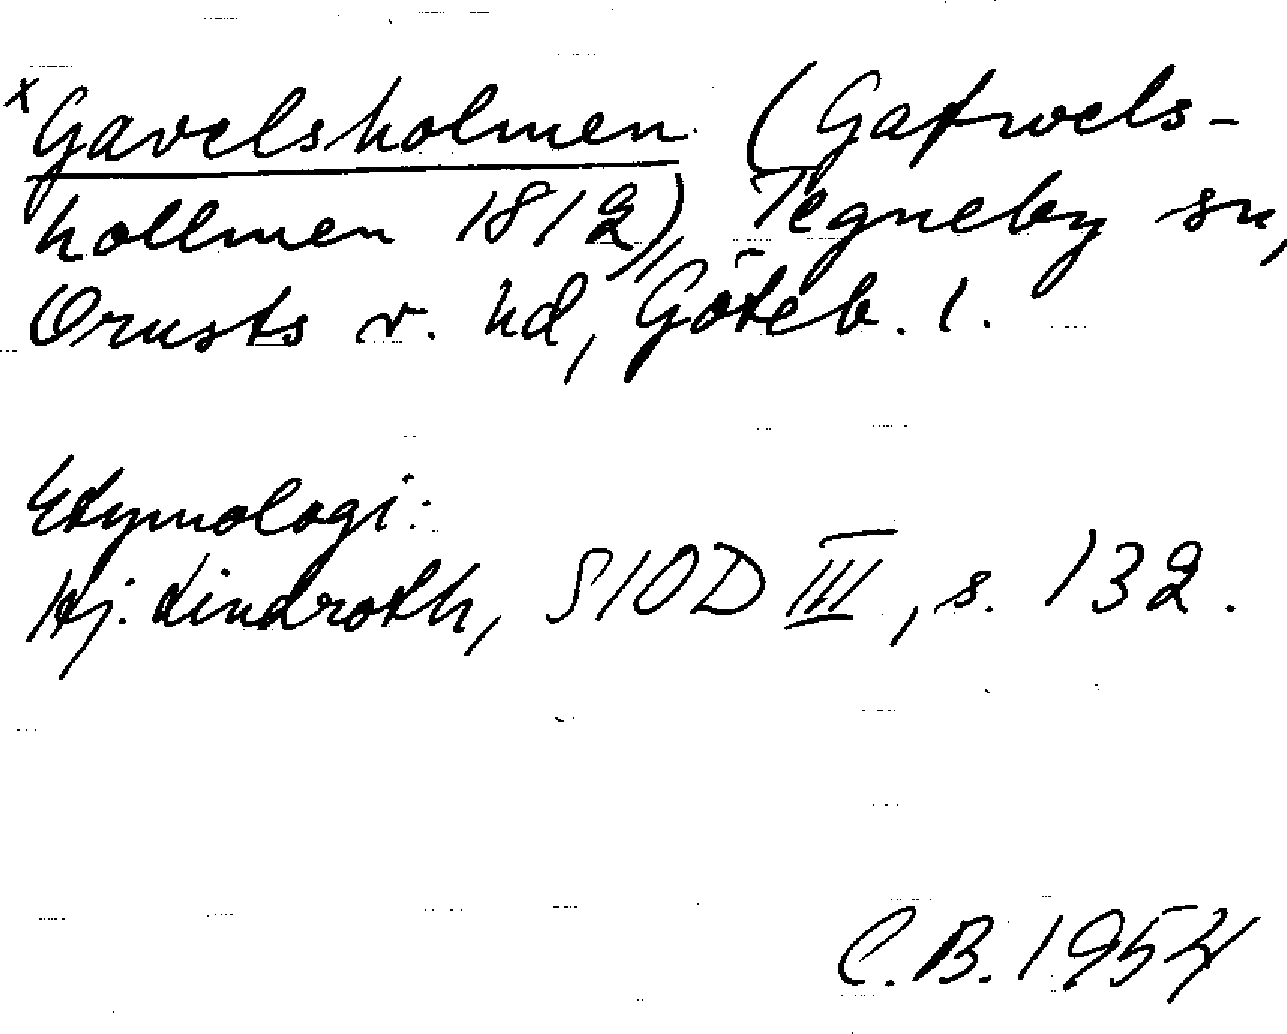 x Gavelsholmen (Gafwels-
hollmen 1812), Tegneby sn,
Orusts v. hd, Göteb. l.
Etymologi:
Hj. Lindroth, SIOD III, s. 132.
C.B. 1954